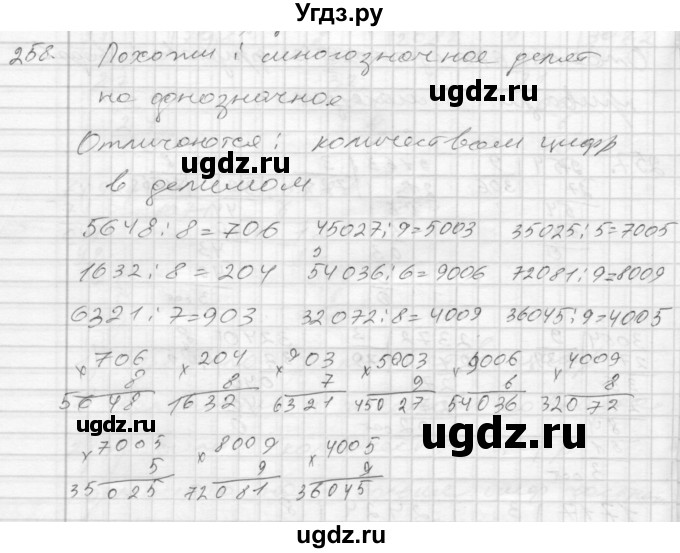 Угдз.ру
258. Похожи: многозначное делят
на однозначное
Отличаются: количеством цифр
в делимом
5648:8=706 45027:9=5003 35025:5=7005
1632:8=204 54036:6=9006 72081:9=8009
6321:7=903 32072:8=4009 36045:9=4005
×706 ×204 ×903 ×5003 ×9006 ×4009
8 8 7 9 6 8
5648 1632 6321 45027 54036 32072
×7005 ×8009 ×4005
5 9 9
35025 72081 36045
ugdz.ru
ugdz.ru
ugdz.ru
ugdz.ru
ugdz.ru
ugdz.ru